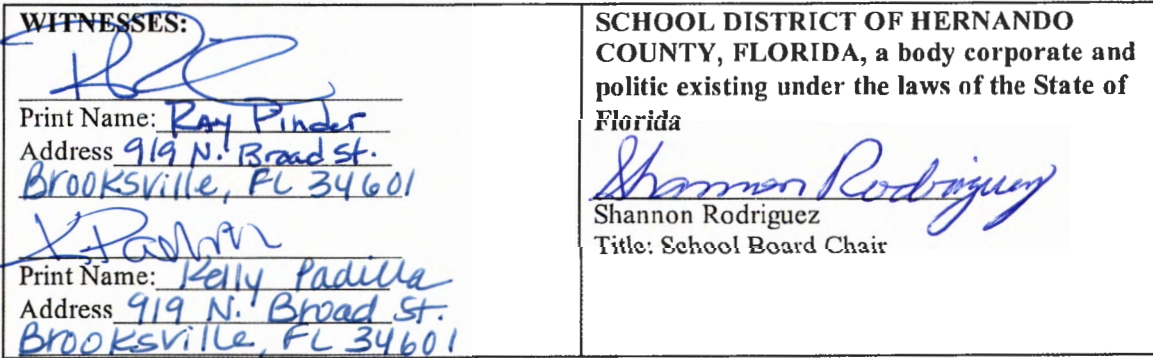 WITNESSES:
Print Name: Ray Pinder
Address 919 N. Broad St.
Brooksville, FL 34601
Print Name: Kelly Padilla
Address 919 N. Broad St.
Brooksville, FL 34601
SCHOOL DISTRICT OF HERNANDO
COUNTY, FLORIDA, a body corporate and
politic existing under the laws of the State of
Florida
Shannon Rodriguez
Shannon Rodriguez
Title: School Board Chair